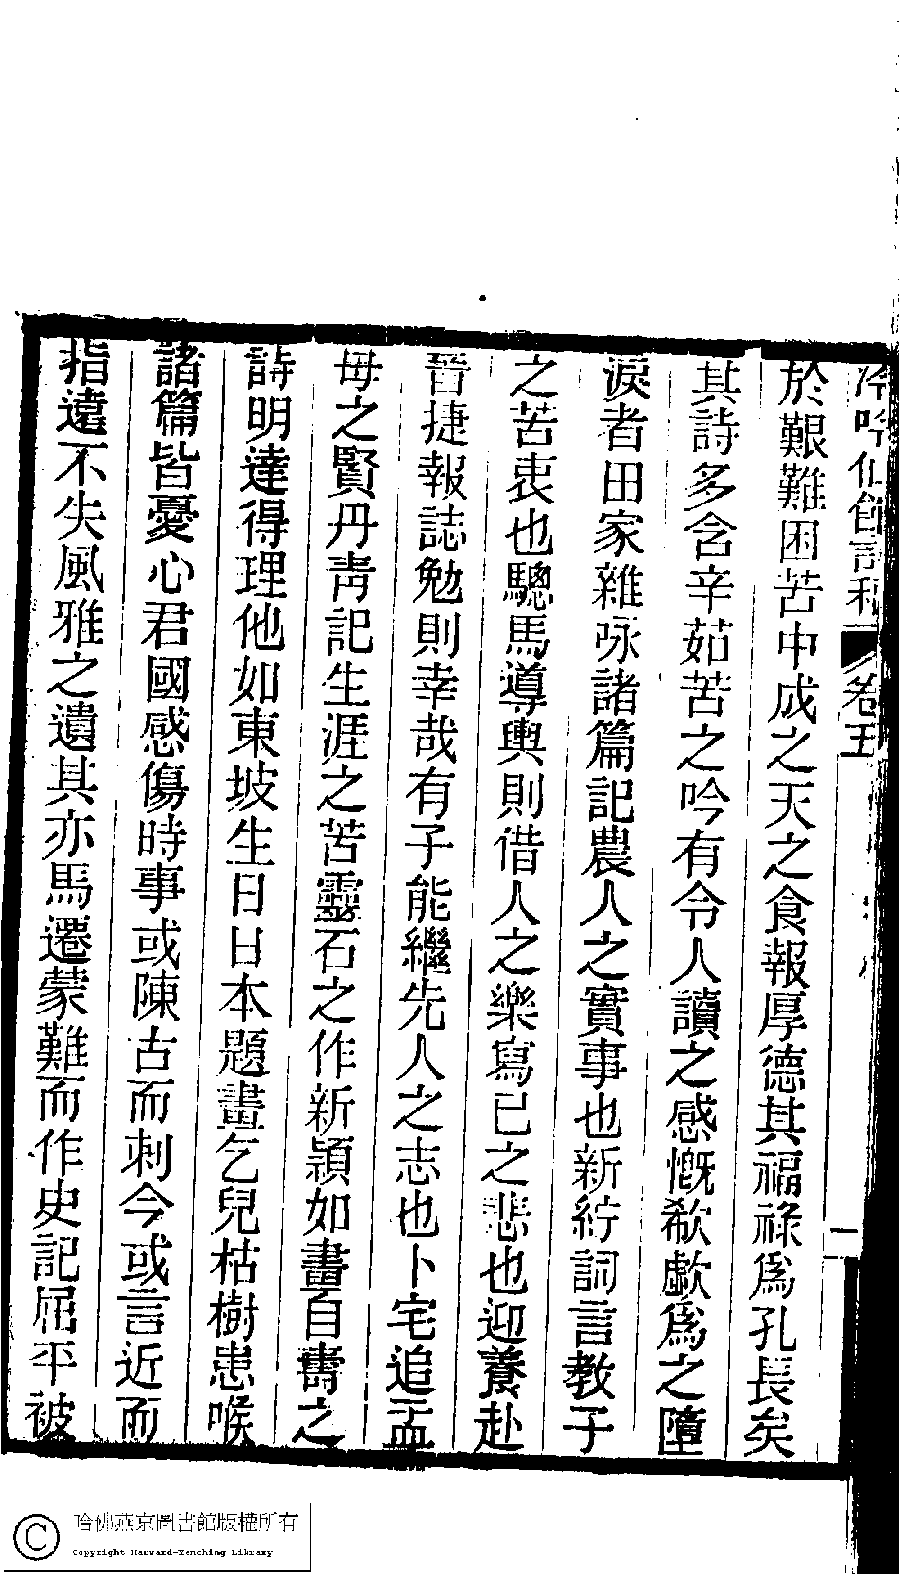 冷吟仙館詩稿 卷五 一
於艱難困苦中成之天之食報厚德其福祿爲孔長矣
其詩多含辛茹苦之吟有令人讀之感慨欷歔爲之墮
淚者田家雜咏諸篇記農人之實事也新紵詞言教子
之苦衷也驄馬導輿則借人之樂寫已之悲也迎養赴
晉捷報誌勉則幸哉有子能繼先人之志也卜宅追孟
母之賢丹靑記生涯之苦靈石之作新穎如畫自壽之
詩明達得理他如東坡生日日本題畫乞兒枯樹患喉
諸篇皆憂心君國感傷時事或陳古而刺今或言近而
指遠不失風雅之遺其亦馬遷蒙難而作史記屈平被
哈佛燕京圖書館版權所有
Copyright Harvard-Yenching Library